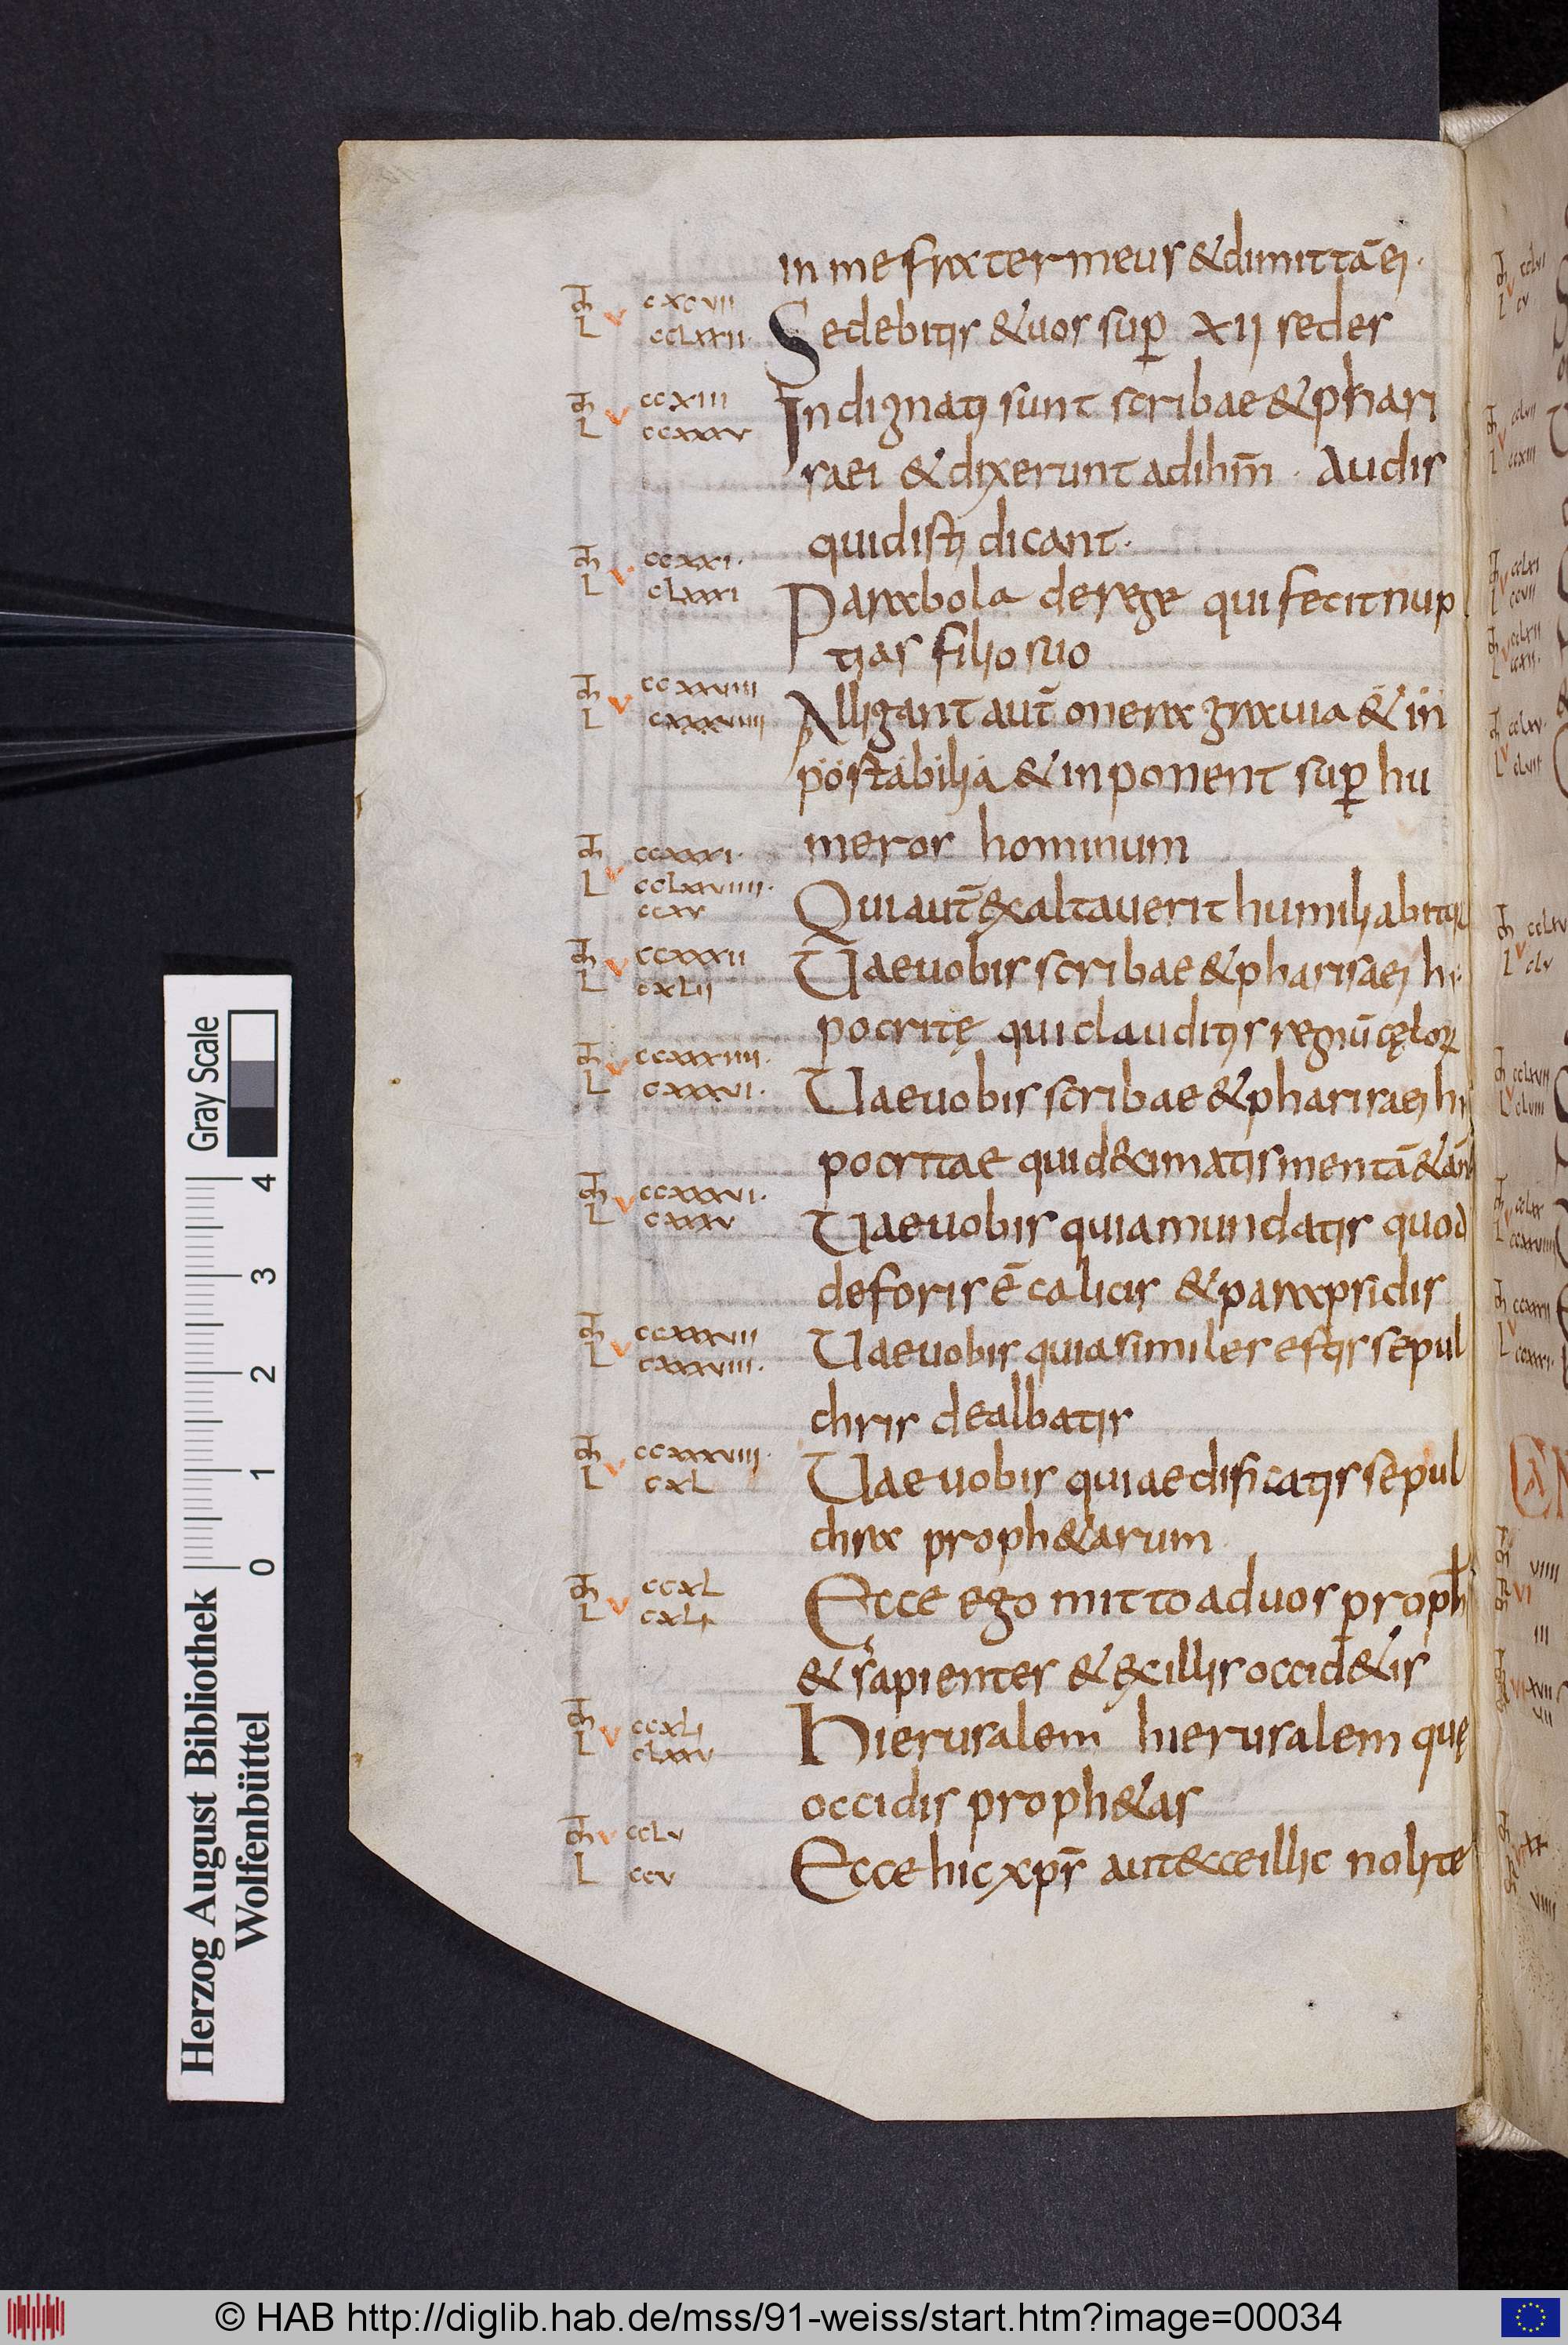 in me frater meus & dimittā ei.
Mh V cxcvii
L cclxxii. Sedebitis & uos sup̄ xii sedes
Mh V ccxiii Indignati sunt scribae & phari
L ccxxxv
saei & dixerunt ad ihm̄. Audis
quid isti dicant.
Mh V ccxxi.
L clxxxi Parabola de rege qui fecit nup
tias filio suo
Mh V ccxxviiii
L cxxxviiii Alligant aut̄ onera grauia & in
portabilia & inponent sup̄ hu
meros hominum
Mh V ccxxxi.
L cclxxviiii.
ccxv Qui aut̄ exaltauerit humiliabitur
Mh V ccxxxii
L cxlii Uae uobis scribae & pharisaei hi
pocritę qui clauditis regnū cęlorꝝ
Mh V ccxxxiiii.
L cxxxvi. Uae uobis scribae & pharisaei hi
pocritae qui d&cimatis mentā & an&
Mh V ccxxxvi.
L cxxxv Uae uobis quia mundatis quod
deforis ē calicis & parapsidis
Mh V ccxxxvii
L cxxxviii. Uae uobis quia similes estis sepul
chris dealbatis
Mh V ccxxxviiii.
L cxl Uae uobis qui aedificatis sepul
chra proph&arum
Mh V ccxl
L cxli Ecce ego mitto ad uos proph̄
& sapientes & ex illis occid&is
Mh V ccxli
L clxxv Hierusalem hierusalem quę
occidis proph&as
Mh V cclv
L ccv Ecce hic xp̄s aut ecce illic nolite
Herzog August Bibliothek
Wolfenbüttel
0 1 2 3 4
Gray Scale
© HAB http://diglib.hab.de/mss/91-weiss/start.htm?image=00034